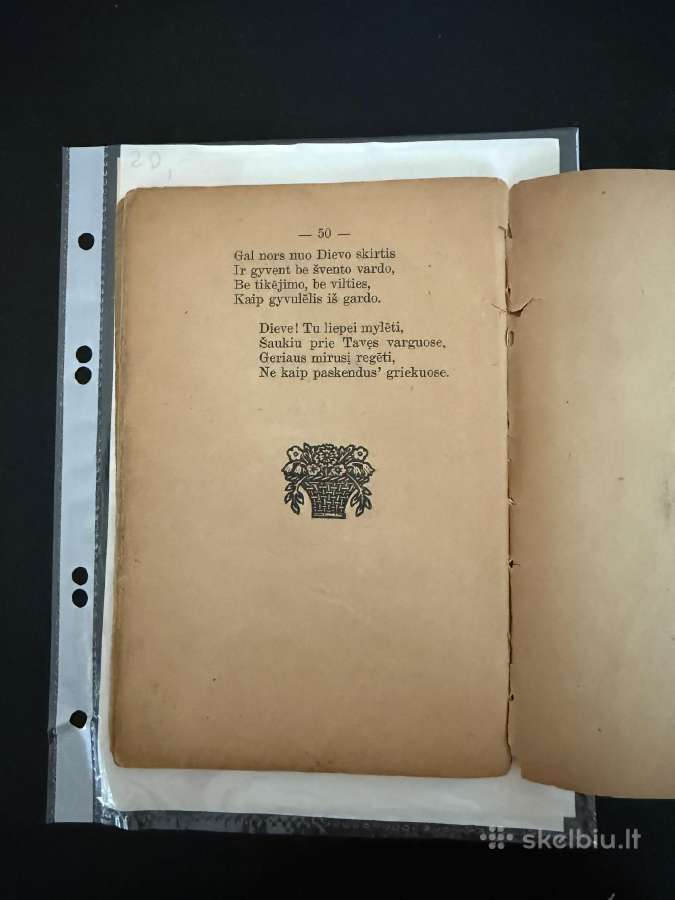 20,
— 50 —
Gal nors nuo Dievo skirtis
Ir gyvent be švento vardo,
Be tikėjimo, be vilties,
Kaip gyvulėlis iš gardo.
Dieve! Tu liepei mylėti,
Šaukiu prie Tavęs varguose,
Geriaus mirusį regėti,
Ne kaip paskendus’ griekuose.
skelbiu.lt